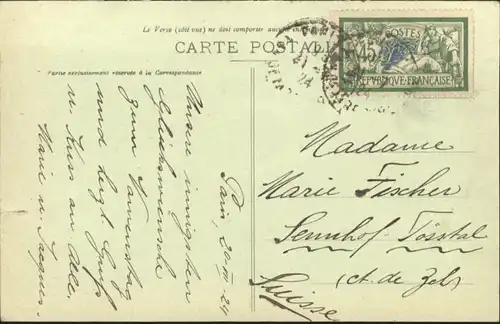 Le Verso (côté vue) ne doit comporter aucune
CARTE POSTALE
Partie exclusivement réservée à la Correspondance
POSTES
45
REPUBLIQUE FRANÇAISE
24
Paris, 20 III 24
Unsere innigsten
Glückwünsche
zum Namenstag
und herzl. Gruss
u. Kuss an Alle.
Marie u. Jaques.
Madame
Marie Fischer
Sennhof-Tösstal
(ct. de Zch)
Suisse